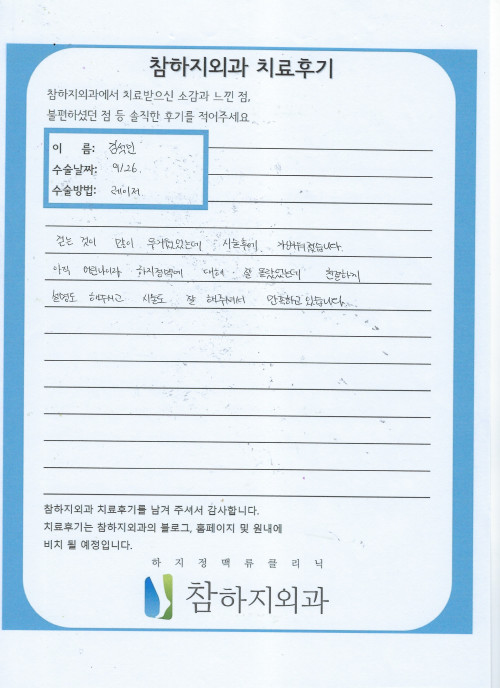 참하지외과 치료후기
참하지외과에서 치료받으신 소감과 느낀 점,
불편하셨던 점 등 솔직한 후기를 적어주세요
이 름: 김석민
수술날짜: 9/26.
수술방법: 레이저.
걷는 것이 많이 무거웠었는데 시술후에 가벼워졌습니다.
아직 어린나이라 하지정맥에 대해 잘 몰랐었는데 친절하게
설명도 해주시고 시술도 잘 해주셔서 만족하고 있습니다.
참하지외과 치료후기를 남겨 주셔서 감사합니다.
치료후기는 참하지외과의 블로그, 홈페이지 및 원내에
비치 될 예정입니다.
하 지 정 맥 류 클 리 닉
참하지외과